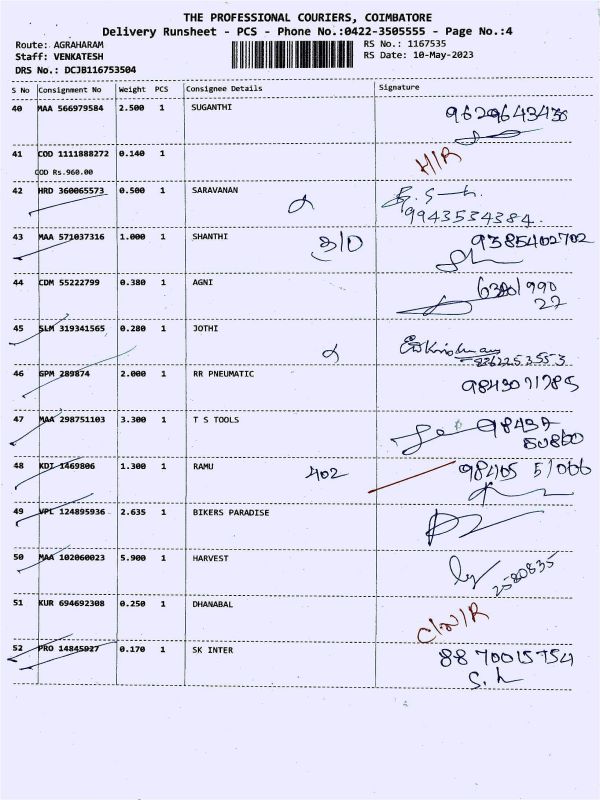 THE PROFESSIONAL COURIERS, COIMBATORE
Delivery Runsheet - PCS - Phone No.:0422-3505555 - Page No.:4
Route: AGRAHARAM RS No.: 1167535
Staff: VENKATESH RS Date: 10-May-2023
DRS No.: DCJB116753504
S No Consignment No Weight PCS Consignee Details Signature
40 MAA 566979584 2.500 1 SUGANTHI 9629643438
41 COD 1111888272 0.140 1 H/R
COD Rs.960.00
42 HRD 360065573 0.500 1 SARAVANAN
9943534384.
43 MAA 571037316 1.000 1 SHANTHI 9385402702
44 CDM 55222799 0.380 1 AGNI
45 SLM 319341565 0.280 1 JOTHI
46 GPM 289874 2.000 1 RR PNEUMATIC
47 MAA 298751103 3.300 1 T S TOOLS
48 KDI 1469806 1.300 1 RAMU 402 98405 51066
49 VPL 124895936 2.635 1 BIKERS PARADISE
50 MAA 102060023 5.900 1 HARVEST 2580835
51 KUR 694692308 0.250 1 DHANABAL
52 PRO 14845927 0.170 1 SK INTER 8870015754